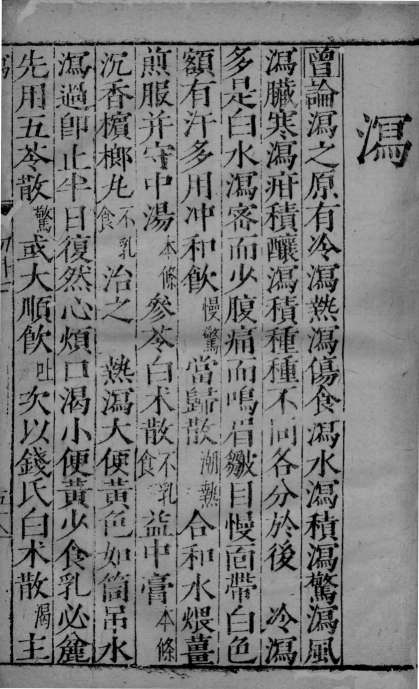 瀉
曾論瀉之原有冷瀉熱瀉傷食瀉水瀉積瀉驚瀉風
瀉臟寒瀉疳積釀瀉積種種不同各分於後　冷瀉
多是白水瀉密而少腹痛而鳴眉皺目慢面帶白色
額有汗多用冲和飲慢驚當歸散潮熱合和水煨薑
煎服并守中湯本條參苓白术散不乳食益中膏本條
沉香檳榔丸不乳食治之　熱瀉大便黃色如筒吊水
瀉過卽止半日復然心煩口渴小便黃少食乳必麄
先用五苓散驚或大順飲吐次以錢氏白术散渴主